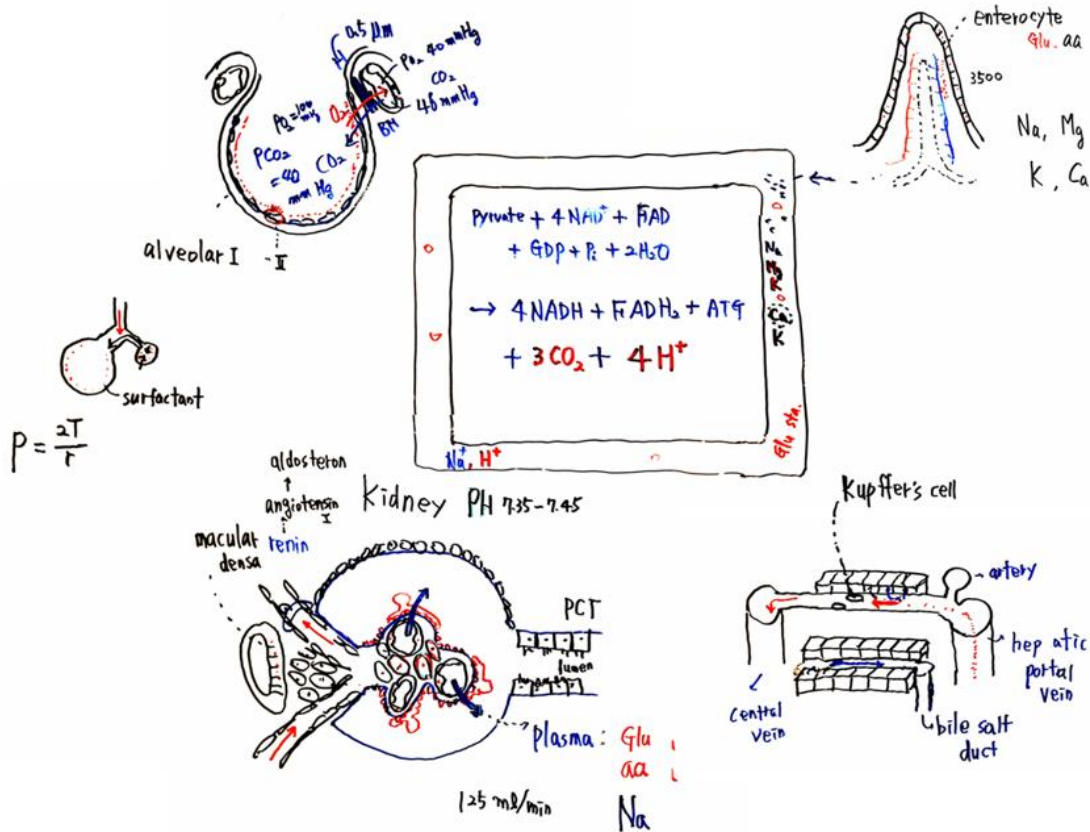 0.5 µm
PO₂ 40 mmHg
CO₂
46 mmHg
PO₂=100
mmHg
O₂
BM
PCO₂
=40
mmHg
CO₂
alveolar I
II
surfactant
P = 2T/r
enterocyte
Glu. aa
3500
Na, Mg
K, Ca
Pyruvate + 4NAD⁺ + FAD
+ GDP + Pi + 2H₂O
→ 4NADH + FADH₂ + ATG
+ 3CO₂ + 4H⁺
Na
Ca
K
Glu sta.
Na⁺, H⁺
aldosteron
↑
angiotensin
I
renin
macular
densa
Kidney PH 7.35-7.45
PCT
lumen
plasma: Glu
aa
Na
125 ml/min
Kupffer's cell
artery
hepatic
portal
vein
central
vein
bile salt
duct